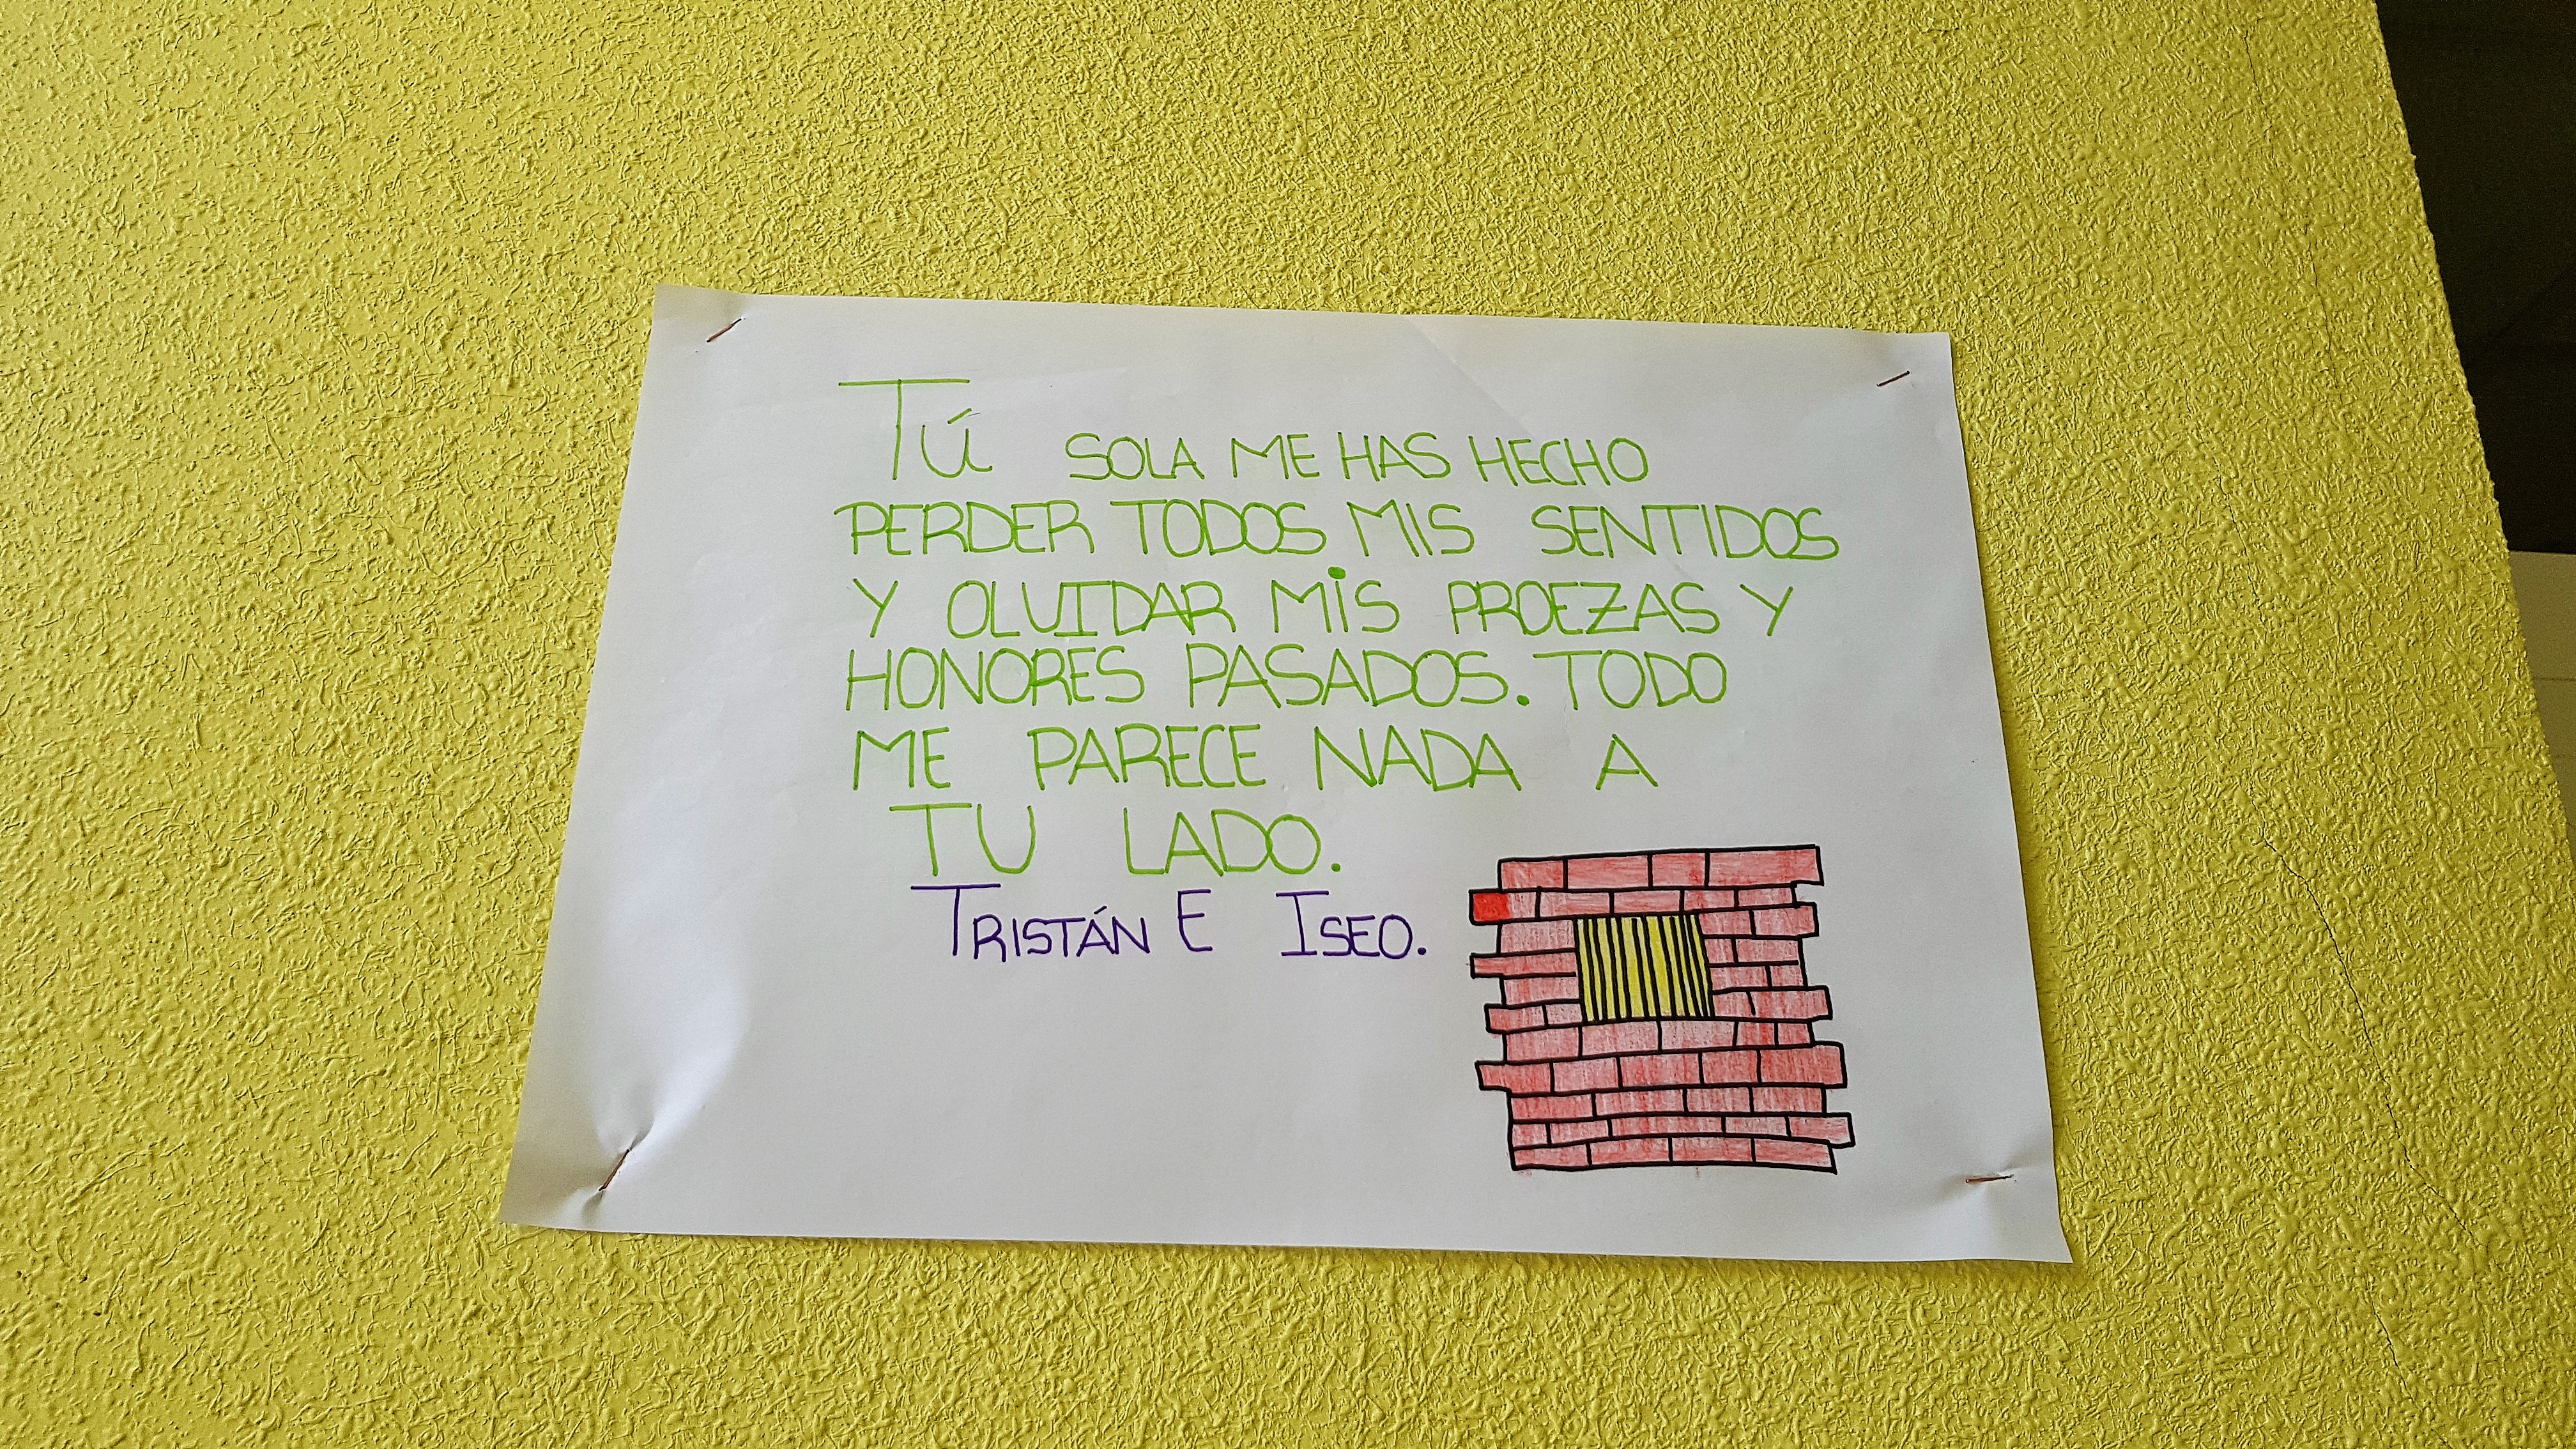 Tú SOLA ME HAS HECHO
PERDER TODOS MIS SENTIDOS
Y OLVIDAR MiS PROEZAS Y
HONORES PASADOS. TODO
ME PARECE NADA A
TU LADO.
TRISTÁN E ISEO.